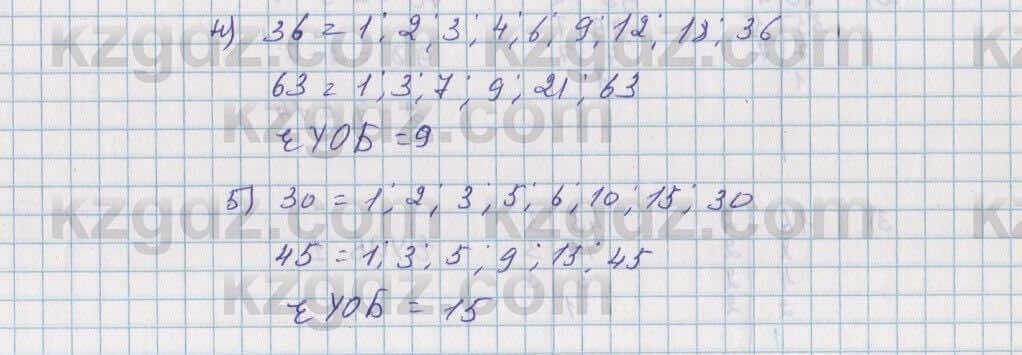 4) 36 = 1; 2; 3; 4; 6; 9; 12; 18; 36
63 = 1; 3; 7; 9; 21; 63
ЕҮОБ = 9
5) 30 = 1; 2; 3; 5; 6; 10; 15; 30
45 = 1; 3; 5; 9; 15; 45
ЕҮОБ = 15
kzgdz.com